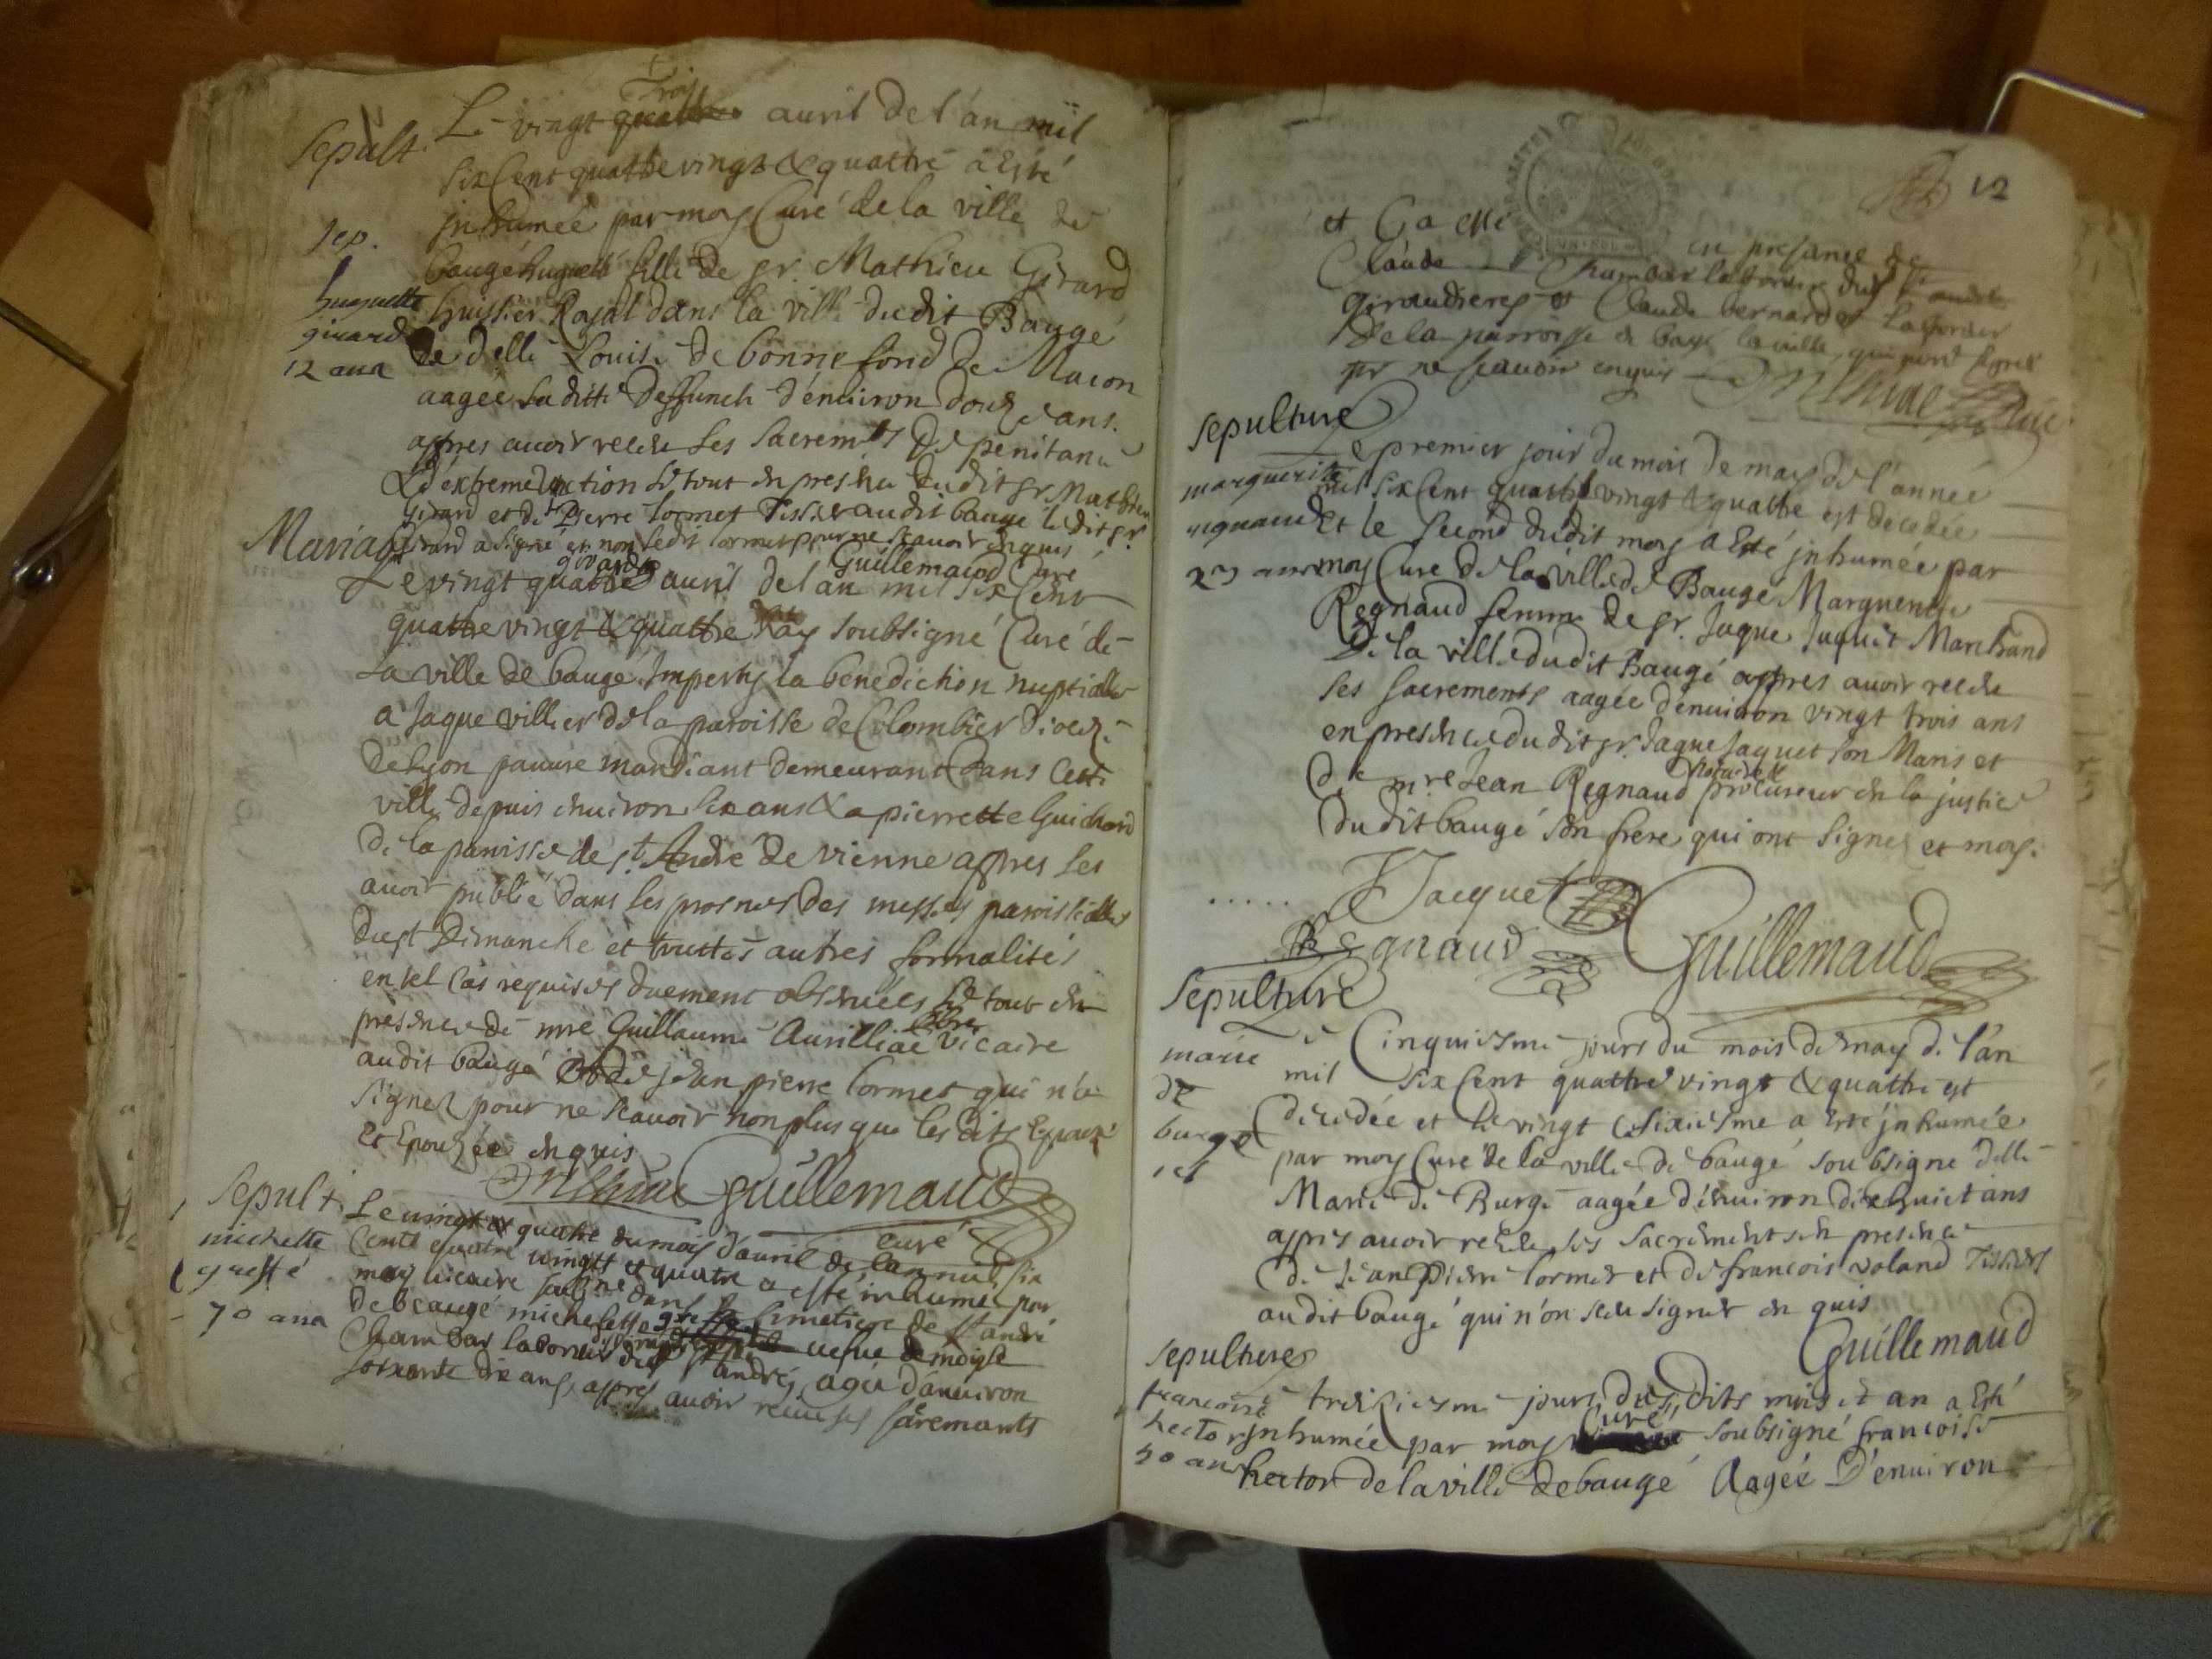 Sepult.
Le vingt trois avril de l'an mil
six cent quattre vingt & quattre a esté
inhumée par moy Curé de la ville de
Baugé huguette fille de sr. Mathieu Girard
huissier Royal dans la ville dudit Baugé
de delle Louise de bonne fond de Macon
aagée laditte deffuncte d'environ douze ans.
appres avoir receu les sacremts de penitance
& d'extreme unction le tout en presence dudit sr. Mathieu
Girard et de Pierre Cormet Tissier audit baugé ledit sr.
Girard a signé et non ledit Cormet pour ne scavoir enquis
girard Guillemaud Curé
sep.
huguette
girard
12 ans
Mariage
Le vingt quattre avril de l'an mil six cent
quattre vingt & quattre Jay soubsigné Curé de
la ville de baugé Imperty la benediction nuptialle
a Jaque villier de la paroisse de Colombier dioceze
de Lyon pauvre mandiant demeurant dans cette
ville depuis environ six ans & a pierrette Guichard
de la paroisse de st. André de vienne appres les
avoir publié dans les prosnes des messes paroissialles
dust Dimanche et touttes autres formalités
en tel cas requises duement observées le tout en
presence de mre Guillaume Aurilliac pbre vicaire
audit baugé Et de jean pierre Cormet qui n'a
signez pour ne scavoir non plus que lesdits Epoux
et Epouzée enquis
Guillemaud
curé
Sepult.
michette
greffé
70 ans
Le vingt et quatre du mois d'avril de lan mil six
cents quatre vingts et quatre a esté inhumé par
moy vicaire soubsigné dans le simetiere de st andré
de beaugé michelette vefve de moyse
Chambar laboureur dud st andré, agée d'anviron
soixante dix ans, appres avoir receu ses sacremants
12
et Ca esté en presance de
Claude Chambar laboureur dud st andré
giraudieres et Claude bernardet laboureur
De la parroisse de bagé la ville, qui nont signé
pr ne scavoir enquis
Sepulture
marguerite
regnaud
23 ans
Le premier jour du mois de may de l'année
mil six cent quattre vingt & quattre est decedée
Et le second dudit moy a Esté inhumée par
moy Curé de la ville de Baugé Marguerite
Regnaud femme de sr. Jaque Jaquet Marchand
De la ville dudit Baugé appres avoir receu
ses sacrements aagée d'environ vingt trois ans
en presence dudit sr. Jaque Jaquet son Maris et
De mre Jean Regnaud Notaire & procureur en la justice
du dit baugé son frere qui ont signez et moy.
Jacquet
Regnaud Guillemaud
Sepulture
marie
de
burge
18
Le Cinquiesme jours du mois de may de l'an
mil six cent quattre vingt & quattre est
decedée et le vingt sixiesme a esté inhumée
par moy Curé de la ville de baugé soubsigné delle
Marie de Burge aagée d'environ dix huict ans
appres avoir receu les sacrements en presence
de Jean Pierre Cormet et de francois voland Tissiers
audit baugé qui n'on sceu signer en quis
Guillemaud
Sepulture
francoise
hector
50 ans
Le treiziesme jours desdits mois et an a Esté
inhumée par moy Curé soubsigné francoise
hector de la ville de baugé Aagée D'environ